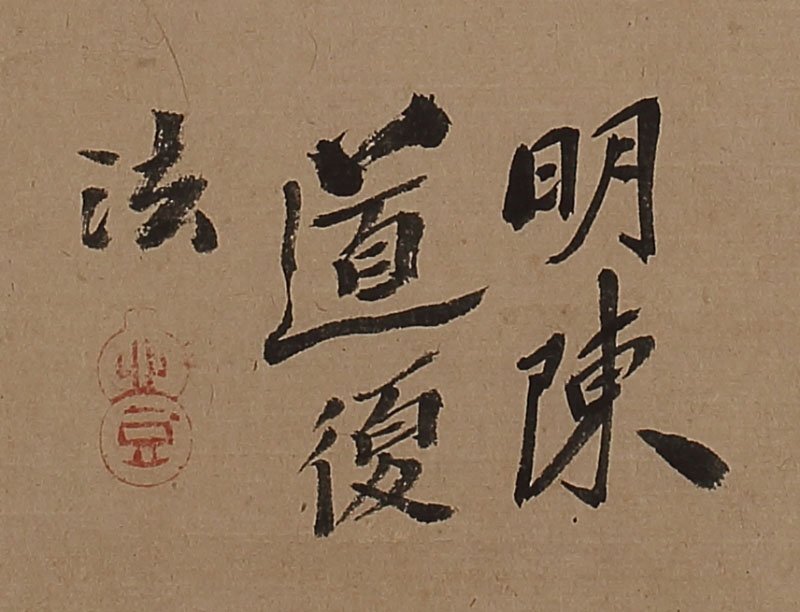 明陳
道復
法